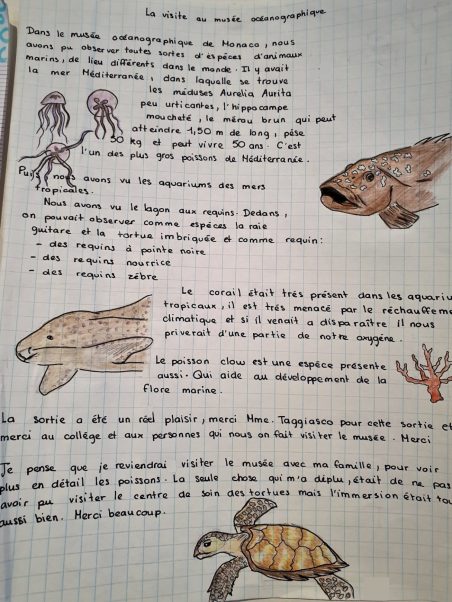 La visite au musée océanographique
Dans le musée océanographique de Monaco, nous
avons pu observer toutes sortes d'éspèces d'animaux
marins, de lieu différents dans le monde. Il y avait
la mer Méditerranée, dans laquelle se trouve
les méduses Aurelia Aurita
peu urticantes, l'hippocampe
moucheté, le mérou brun qui peut
atteindre 1,50 m de long, pèse
50 kg et peut vivre 50 ans. C'est
l'un des plus gros poissons de Méditerranée.
Puis nous avons vu les aquariums des mers
tropicales.
Nous avons vu le lagon aux requins. Dedans,
on pouvait observer comme espèces la raie
guitare et la tortue imbriquée et comme requin:
- des requins à pointe noire
- des requins nourrice
- des requins zèbre
Le corail était trés présent dans les aquariu
tropicaux, il est trés menacé par le réchauffeme
climatique et si il venait a disparaître Il nous
priverait d'une partie de notre oxygène.
Le poisson clow est une espèce présente
aussi. Qui aide au développement de la
flore marine.
La sortie a été un réel plaisir, merci Mme. Taggiasco pour cette sortie et
merci au collège et aux personnes qui nous on fait visiter le musée. Merci
Je pense que je reviendrai visiter le musée avec ma famille, pour voir
plus en détail les poissons. La seule chose qui m'a déplu, était de ne pas
avoir pu visiter le centre de soin des tortues mais l'immersion était tou
aussi bien. Merci beaucoup.